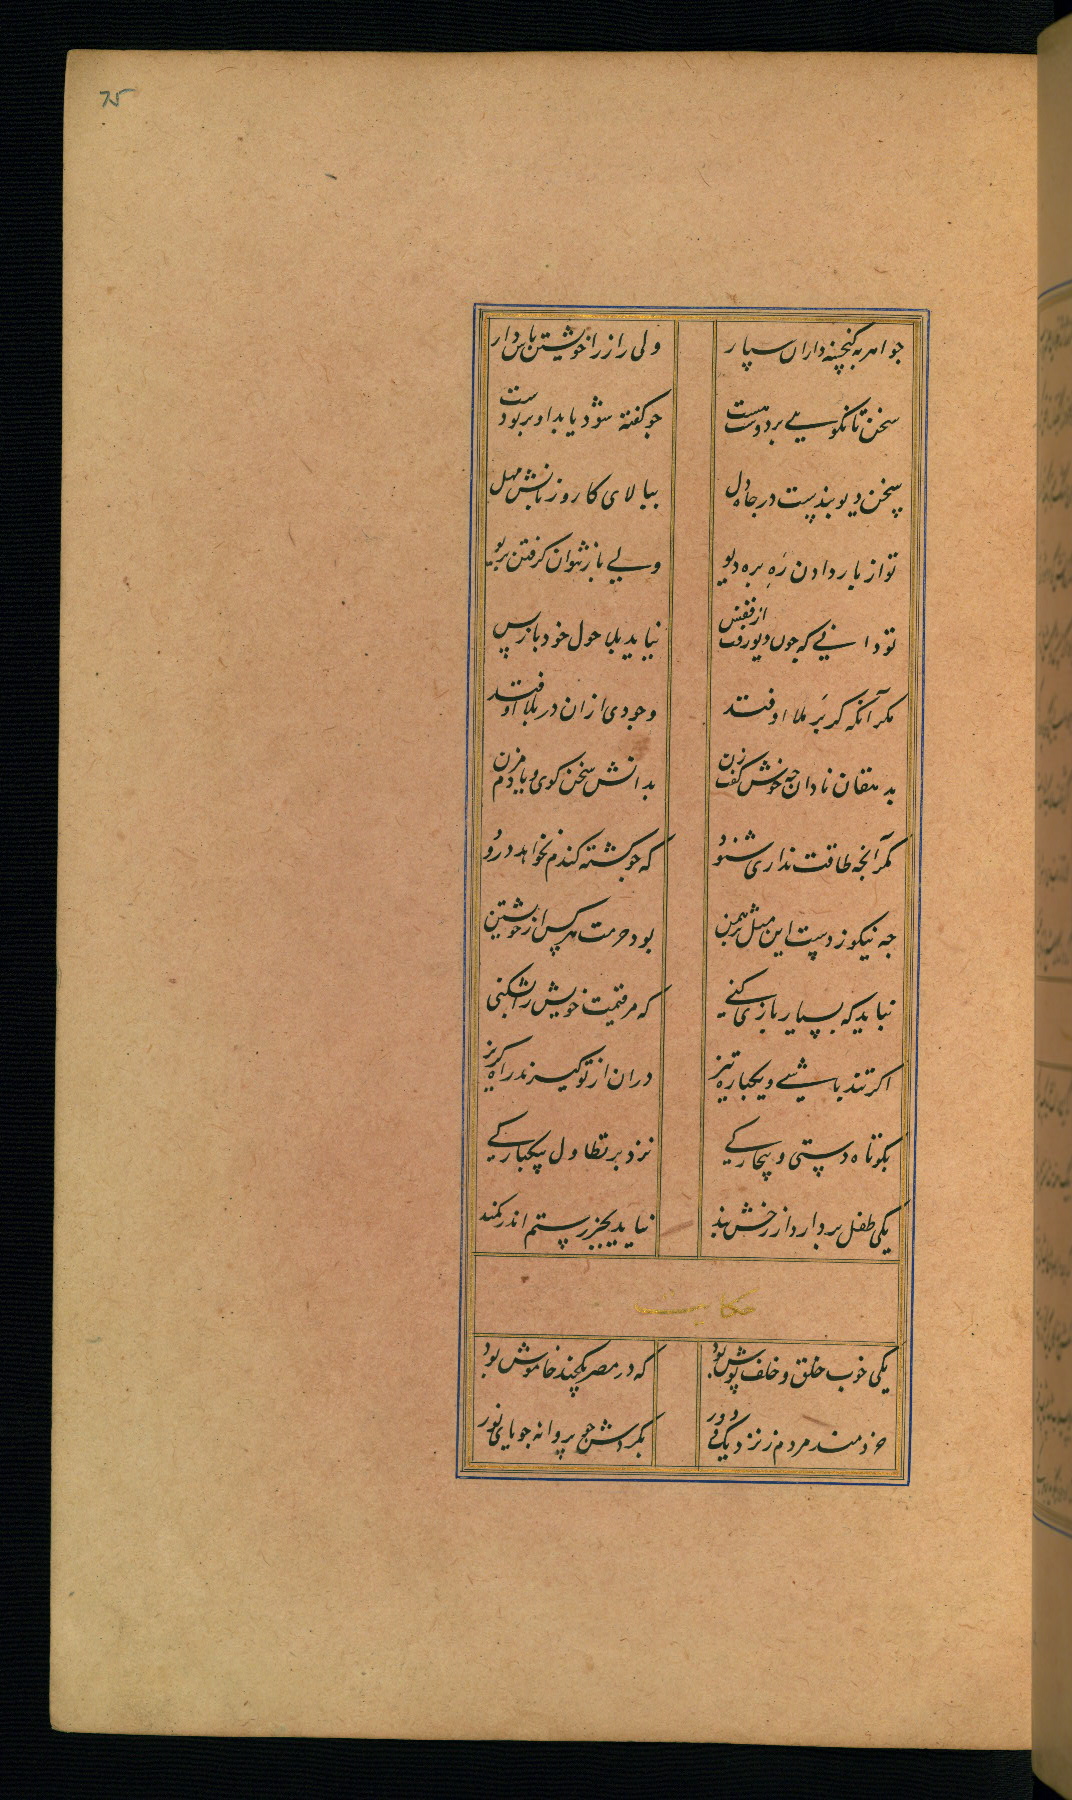 75
جواهر به کنجینه داران سپار ولی راز را خویشتن پاس دار
سخن تا نکویی برو دست هست جو کفته شود یابد او بر تو دست
سخن دیو بندیست در جاه دل ببالای کام و زبانش مهل
توان باز دادن ره بره دیو ولی باز نتوان کرفتن بریو
تو دانی که جون دیو رفت از قفس نیاید بلا حول خود باز پس
مکر آنکه کر بر ملا اوفتد وجودی ازان در بلا اوفتد
بدهقان نادان جه خوش کفت زن بدانش سخن کوی و یا دم مزن
مکر آنجه طاقت نداری شنود که جو کشته کندم نخواهد درود
جه نیکو زدست این مثل برهمن بود حرمت هر کس از خویشتن
نباید که بسیار بازی کنی که مر قیمت خویش را بشکنی
اکر تند باشی و یکباره تیز دران از تو کیرند راه کریز
بکوتاه دستی و بیچارکی نزد بر تطاول یکبارکی
یکی طفل بردارد از رخش بند نیاید بجز رستم اندر کمند
حکایت
یکی خوب خلق و خلق پوش بود که در مصر یکچند خاموش بود
خردمند مردم ز نزدیک و دور بکردش جو پروانه جویای نور